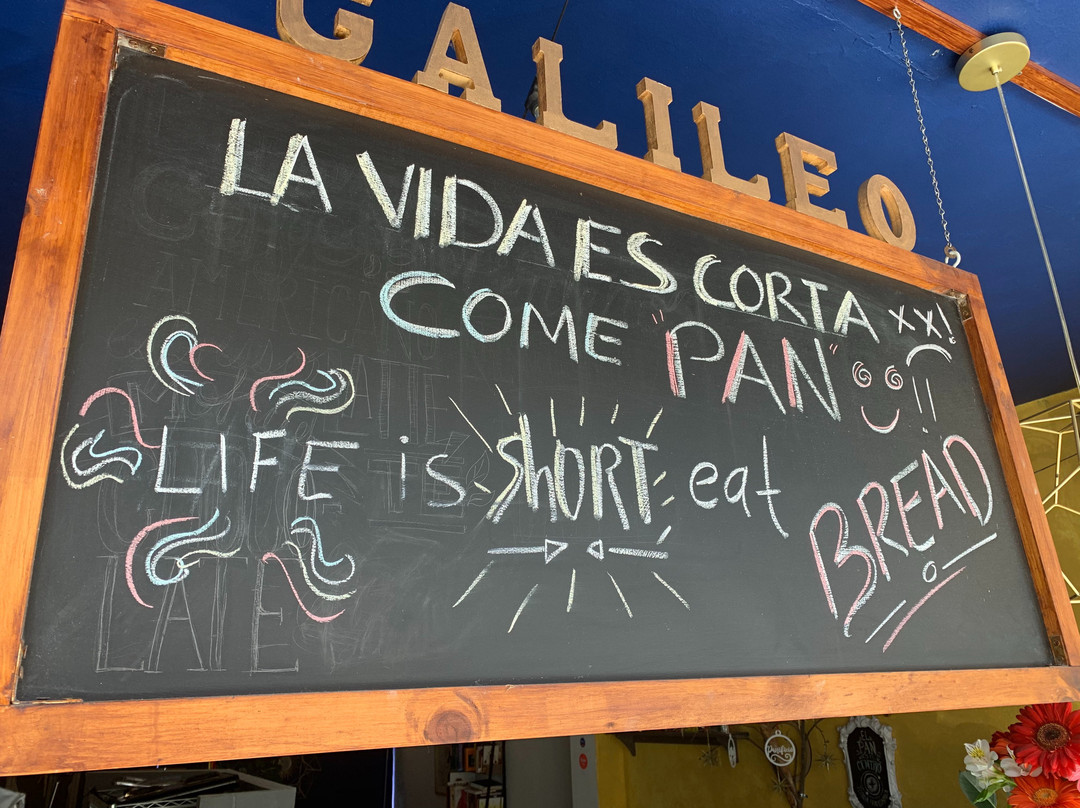 GALILEO
LA VIDA ES CORTA xx!
COME "PAN"
LIFE is ShORT eat BREAD
LATE
EL PAN